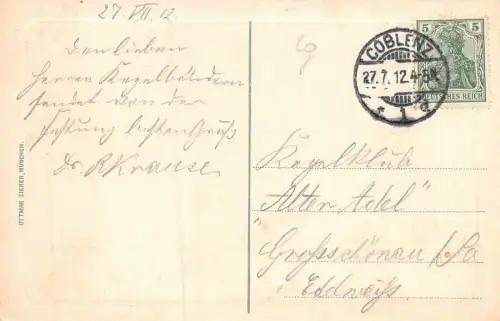 27. VII. 12.
Den lieben
Herren Kegelbrüdern
sendet von der
Festung besten Gruß
Dr. R Krause
OTTMAR ZIEHER, MÜNCHEN.
COBLENZ
27.7.12.4-5N.
* 1 d
5 5
DEUTSCHES REICH
Kegelklub
"Alter Adel"
Großschönau i/Sa
Edelweiß